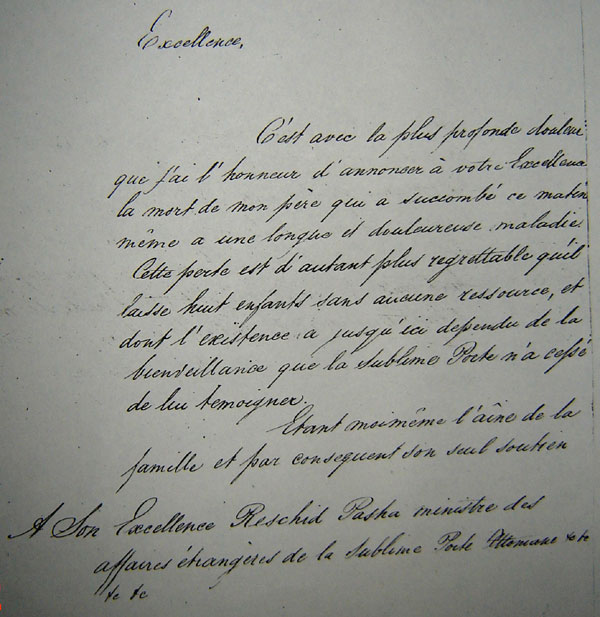 Excellence,
C'est avec la plus profonde douleur
que j'ai l'honneur d'annoncer à votre Excellence
la mort de mon père qui a succombé ce matin
même a une longue et douleureuse maladie.
Cette perte est d'autant plus regrettable qu'il
laisse huit enfants sans aucune ressource, et
dont l'existence a jusqu'ici dependu de la
bienveillance que la Sublime Porte n'a cessé
de lui temoigner.
Etant moimême l'aîne de la
famille et par consequent son seul soutien
A Son Excellence Reschid Pasha ministre des
affaires étrangères de la Sublime Porte Ottomane &c &c
&c &c